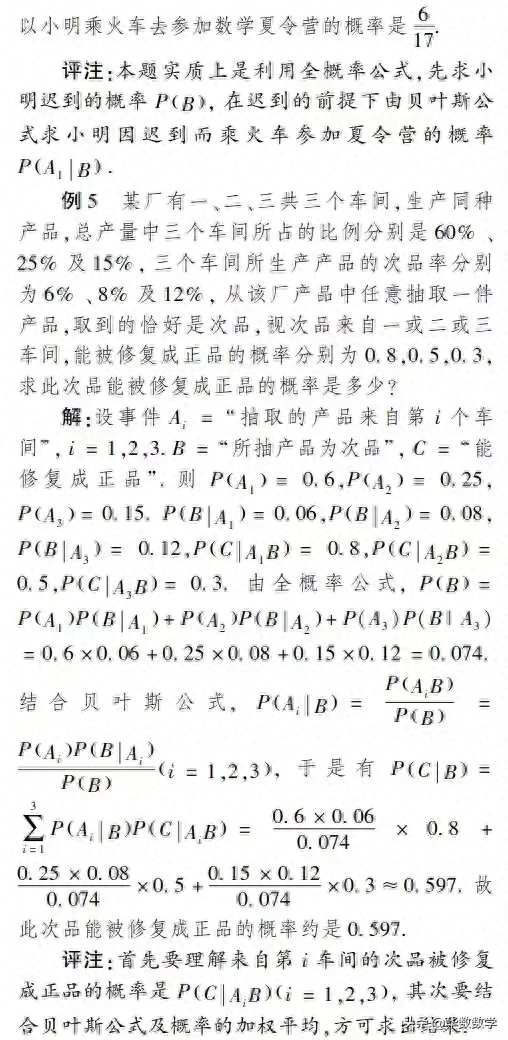 以小明乘火车去参加数学夏令营的概率是 6/17.
评注:本题实质上是利用全概率公式,先求小
明迟到的概率 P(B), 在迟到的前提下由贝叶斯公
式求小明因迟到而乘火车参加夏令营的概率
P(A₁|B).
例 5 某厂有一、二、三共三个车间,生产同种
产品,总产量中三个车间所占的比例分别是 60% 、
25% 及 15%, 三个车间所生产产品的次品率分别
为 6% 、8% 及 12%, 从该厂产品中任意抽取一件
产品,取到的恰好是次品,视次品来自一或二或三
车间,能被修复成正品的概率分别为 0.8,0.5,0.3,
求此次品能被修复成正品的概率是多少?
解:设事件 Aᵢ = “抽取的产品来自第 i 个车
间”, i = 1,2,3. B = “所抽产品为次品”, C = “能
修复成正品”. 则 P(A₁) = 0.6,P(A₂) = 0.25,
P(A₃) = 0.15. P(B|A₁) = 0.06,P(B|A₂) = 0.08,
P(B|A₃) = 0.12,P(C|A₁B) = 0.8,P(C|A₂B) =
0.5,P(C|A₃B) = 0.3. 由全概率公式, P(B) =
P(A₁)P(B|A₁) + P(A₂)P(B|A₂) + P(A₃)P(B|A₃)
= 0.6 × 0.06 + 0.25 × 0.08 + 0.15 × 0.12 = 0.074,
结合贝叶斯公式, P(Aᵢ|B) = P(AᵢB)/P(B) =
P(Aᵢ)P(B|Aᵢ)/P(B) (i = 1,2,3), 于是有 P(C|B) =
∑ᵢ₌₁³ P(Aᵢ|B)P(C|AᵢB) = 0.6 × 0.06/0.074 × 0.8 +
0.25 × 0.08/0.074 × 0.5 + 0.15 × 0.12/0.074 × 0.3 ≈ 0.597, 故
此次品能被修复成正品的概率约是 0.597.
评注:首先要理解来自第 i 车间的次品被修复
成正品的概率是 P(C|AᵢB)(i = 1,2,3), 其次要结
合贝叶斯公式及概率的加权平均,方可求出结果.